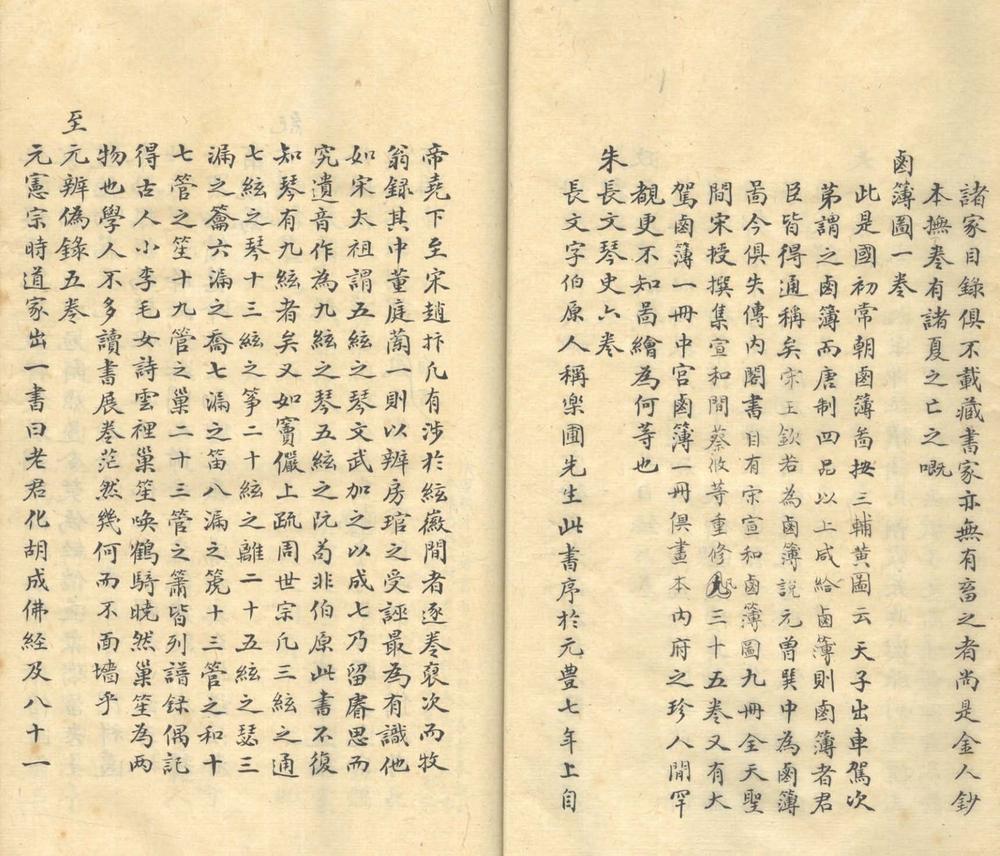 諸家目錄俱不載藏書家亦無有畜之者尚是金人鈔
本撫卷有諸夏之亡之嘅
鹵簿圖一卷
此是國初常朝鹵簿啚按三輔黄圖云天子出車駕次
第謂之鹵簿而唐制四品以上咸給鹵簿則鹵簿者君
臣皆得通稱矣宋王欽若為鹵簿說元曾巽申為鹵簿
啚今俱失傳內閣書目有宋宣和鹵簿圖九冊全天聖
間宋授撰集宣和間蔡攸等重修凡三十五卷又有大
駕鹵簿一冊中宮鹵簿一冊俱畫本內府之珍人間罕
覩更不知啚繪為何等也
朱長文琴史六卷
長文字伯原人稱樂圃先生此書序於元豊七年上自
帝堯下至宋趙抃凢有涉於絃徽間者逐卷裒次而牧
翁録其中董庭蘭一則以辨房琯之受誣最為有識他
如宋太祖謂五絃之琴文武加之以成七乃留睿思而
究遺音作為九絃之琴五絃之阮苟非伯原此書不復
知琴有九絃者矣又如竇儼上疏周世宗凢三絃之通
七絃之琴十三絃之筝二十絃之離二十五絃之瑟三
漏之籥六漏之喬七漏之笛八漏之箎十三管之和十
七管之笙十九管之巢二十三管之簫皆列譜録偶記
得古人小李毛女詩雲裡巢笙喚鶴騎晓然巢笙為兩
物也學人不多讀書展卷茫然幾何而不面墻乎
至元辨偽錄五卷
元憲宗時道家出一書曰老君化胡成佛經及八十一